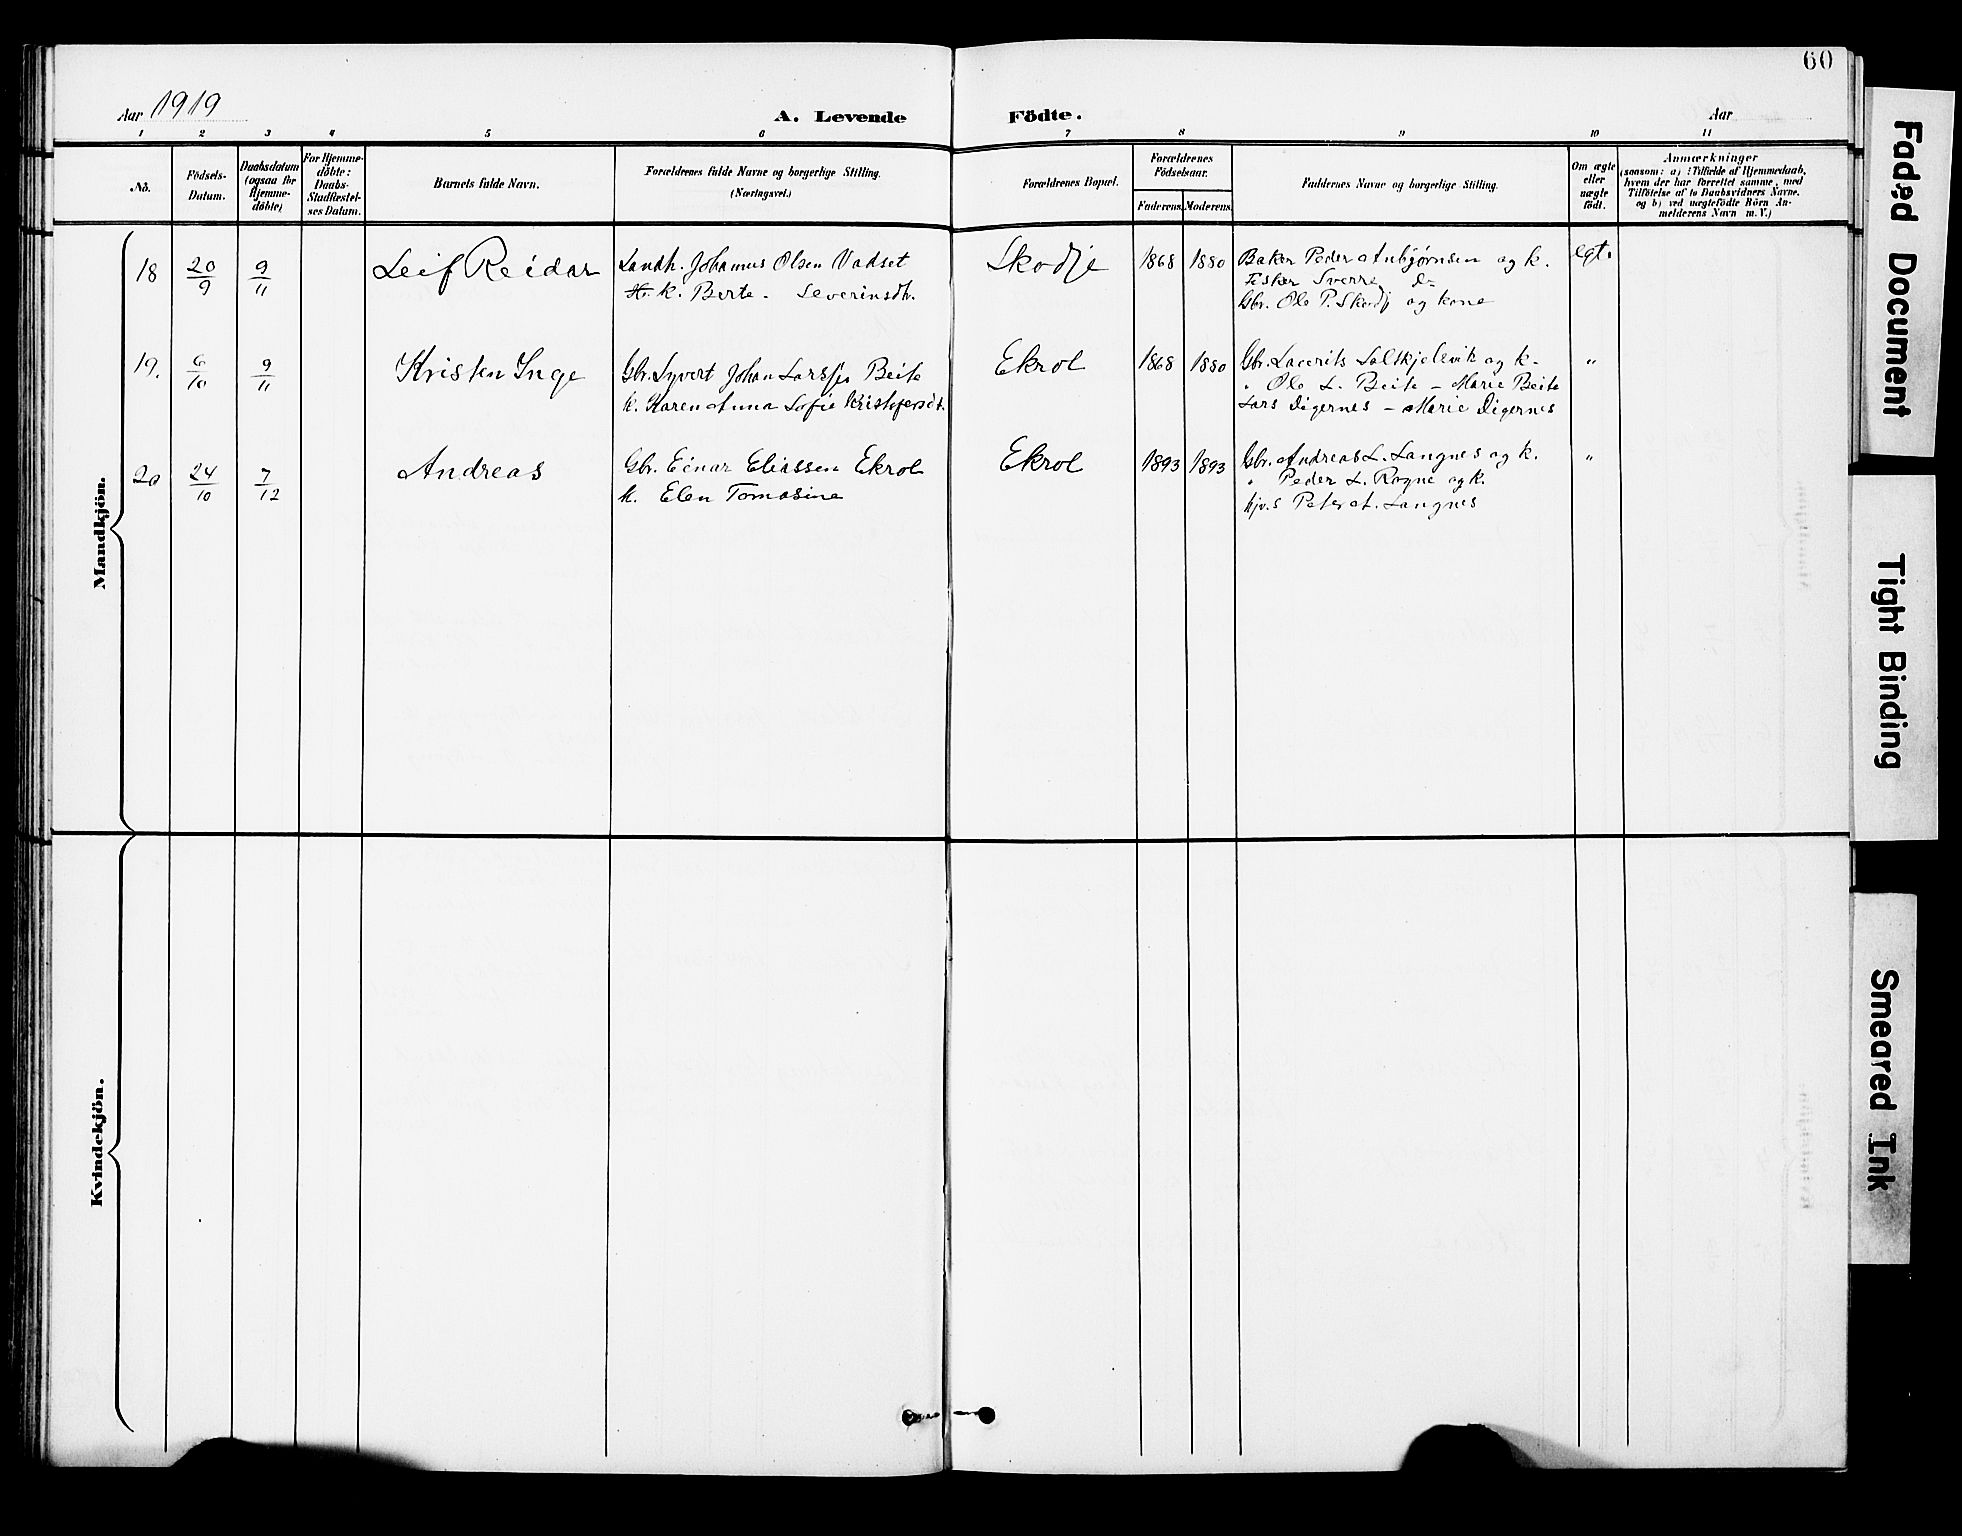 60
Aar 1919
A. Levende
Födte.
Aar
1 2 3 4 5 6 7 8 9 10 11
No.
Födsels-
Datum.
Daabsdatum
(ogsaa for
Hjemme-
döbte)
For Hjemme-
döbte:
Daabs-
Stadfæstel-
ses Datum.
Barnets fulde Navn.
Forældrenes fulde Navne og borgerlige Stilling.
(Næringsvei.)
Forældrenes Bopæl.
Forældrenes
Födselsaar.
Faderens Moderens
Faddernes Navne og borgerlige Stilling.
Om ægte
eller
uægte
födt.
Anmærkninger
(saasom: a) i Tilfælde af Hjemmedaab,
hvem der har forrettet samme, med
Tilföielse af to Daabsvidners Navne,
og b) ved uægtefödte Börn An-
melderens Navn m. V.)
Mandkjön.
18 20/9 9/11 Leif Reidar
Landh. Johannes Olsen Vadset
k. Berte Severinsdt.
Skodje 1868 1880
Baker Peder Anbjørnsen og k.
Fisker Sverre do
Gbr. Ole P. Skodj og kone
egt.
19. 6/10 9/11 Kristen Inge
Gbr. Syvert Johan Larssen Beite
k. Karen Anna Sofie Kristofersdt.
Ekrol 1868 1880
Gbr. Laurits Solskjelsvik og k.
" Ole L. Beite – Marie Beite
Lars Digernes – Marie Digernes
"
20 24/10 7/12 Andreas
Gbr. Einar Eliassen Ekrol
k. Elen Tomasine
Ekrol 1893 1893
Gbr. Andreas L. Langnes og k.
" Peder L. Rogne og k.
Peter A. Langnes
"
Kvindekjön.
Faded Document
Tight Binding
Smeared Ink